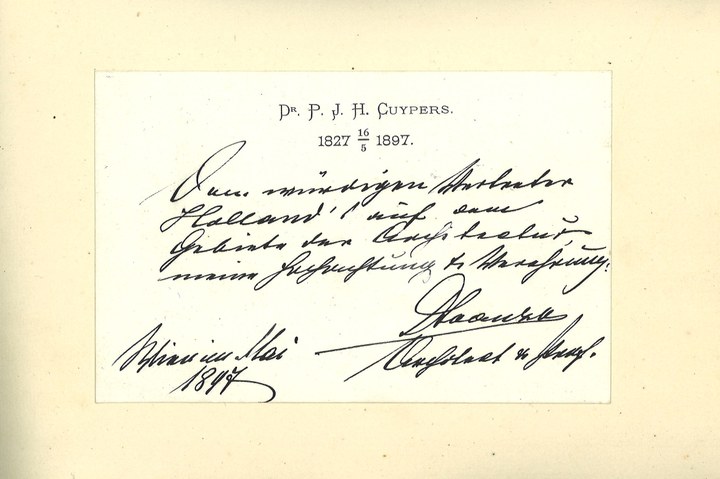 Dr. P. J. H. CUYPERS.
1827 16/5 1897.
Dem würdigen Vertreter
Holland's auf dem
Gebiete der Architectur,
meine Hochachtung & Verehrung.
Architect & Prof.
Wien im Mai
1897